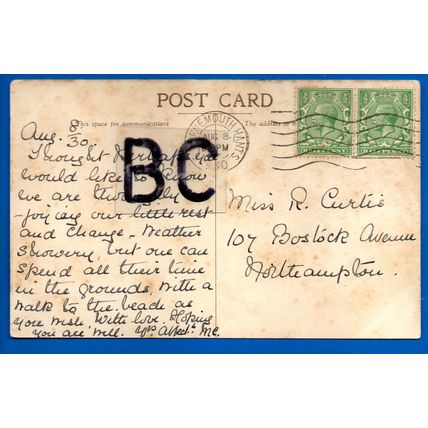 POST CARD
This space for communications
The address to
BOURNEMOUTH HANTS
AUG 8
PM
30
Aug. 8/30
Thought Perhaps you
would like to know
we are
-joying our little rest
and change - Weather
showery, but one can
spend all their time
in the grounds, with a
walk to the beach as
you wish. With love, Hoping
you are well. Yrs Affectly MC.
BC
Miss R. Curtis
107 Bostock Avenue
Northampton.